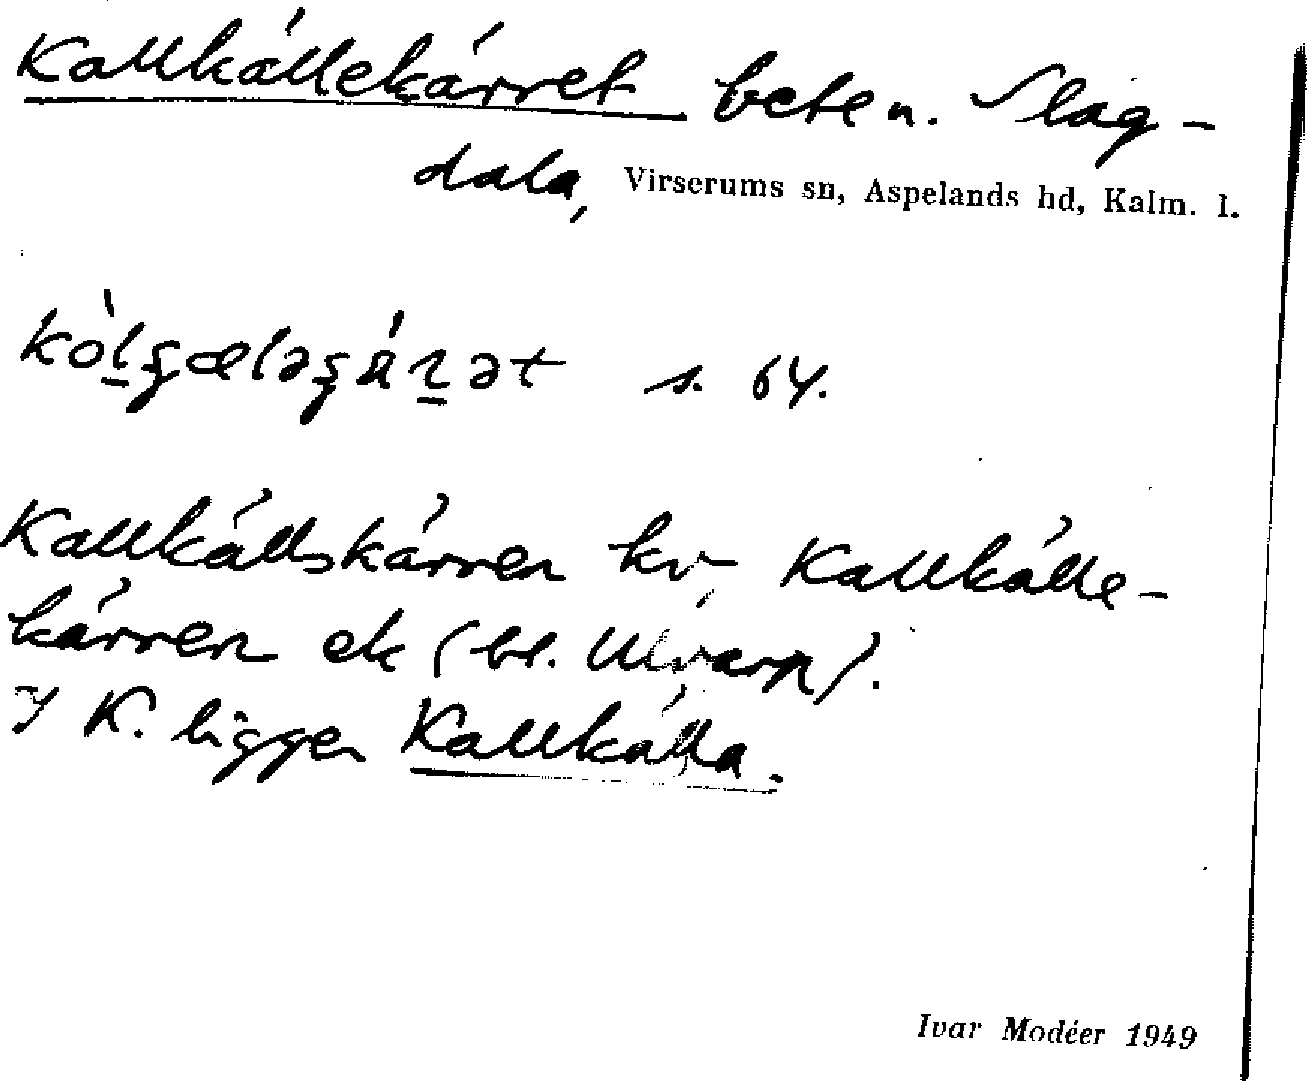 Kallkällekärret beten. Slag-
dala, Virserums sn, Aspelands hd, Kalm. l.
s. 64.
Kallkällskärren kv, Kallkälle-
kärren ek (bl. Ulvarp).
I K. ligger Kallkälla.
Ivar Modéer 1949